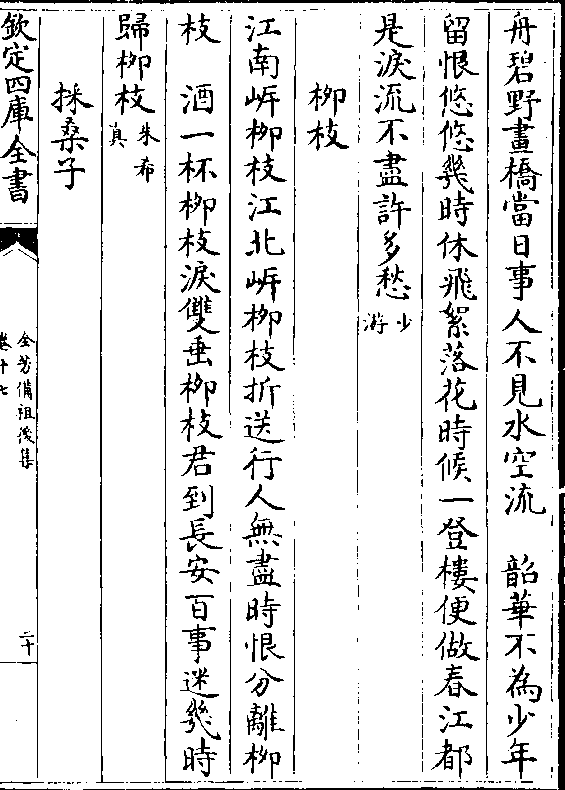 舟碧野畫橋當日事人不見水空流　韶華不為少年
留恨悠悠幾時休飛絮落花時候一登樓便做春江都
是淚流不盡許多愁少游
柳枝
江南岸柳枝江北岸柳枝折送行人無盡時恨分離柳
枝　酒一杯柳枝淚雙垂柳枝君到長安百事迷幾時
歸柳枝朱希真
採桑子
欽定四庫全書
全芳備祖後集
卷十七
二十